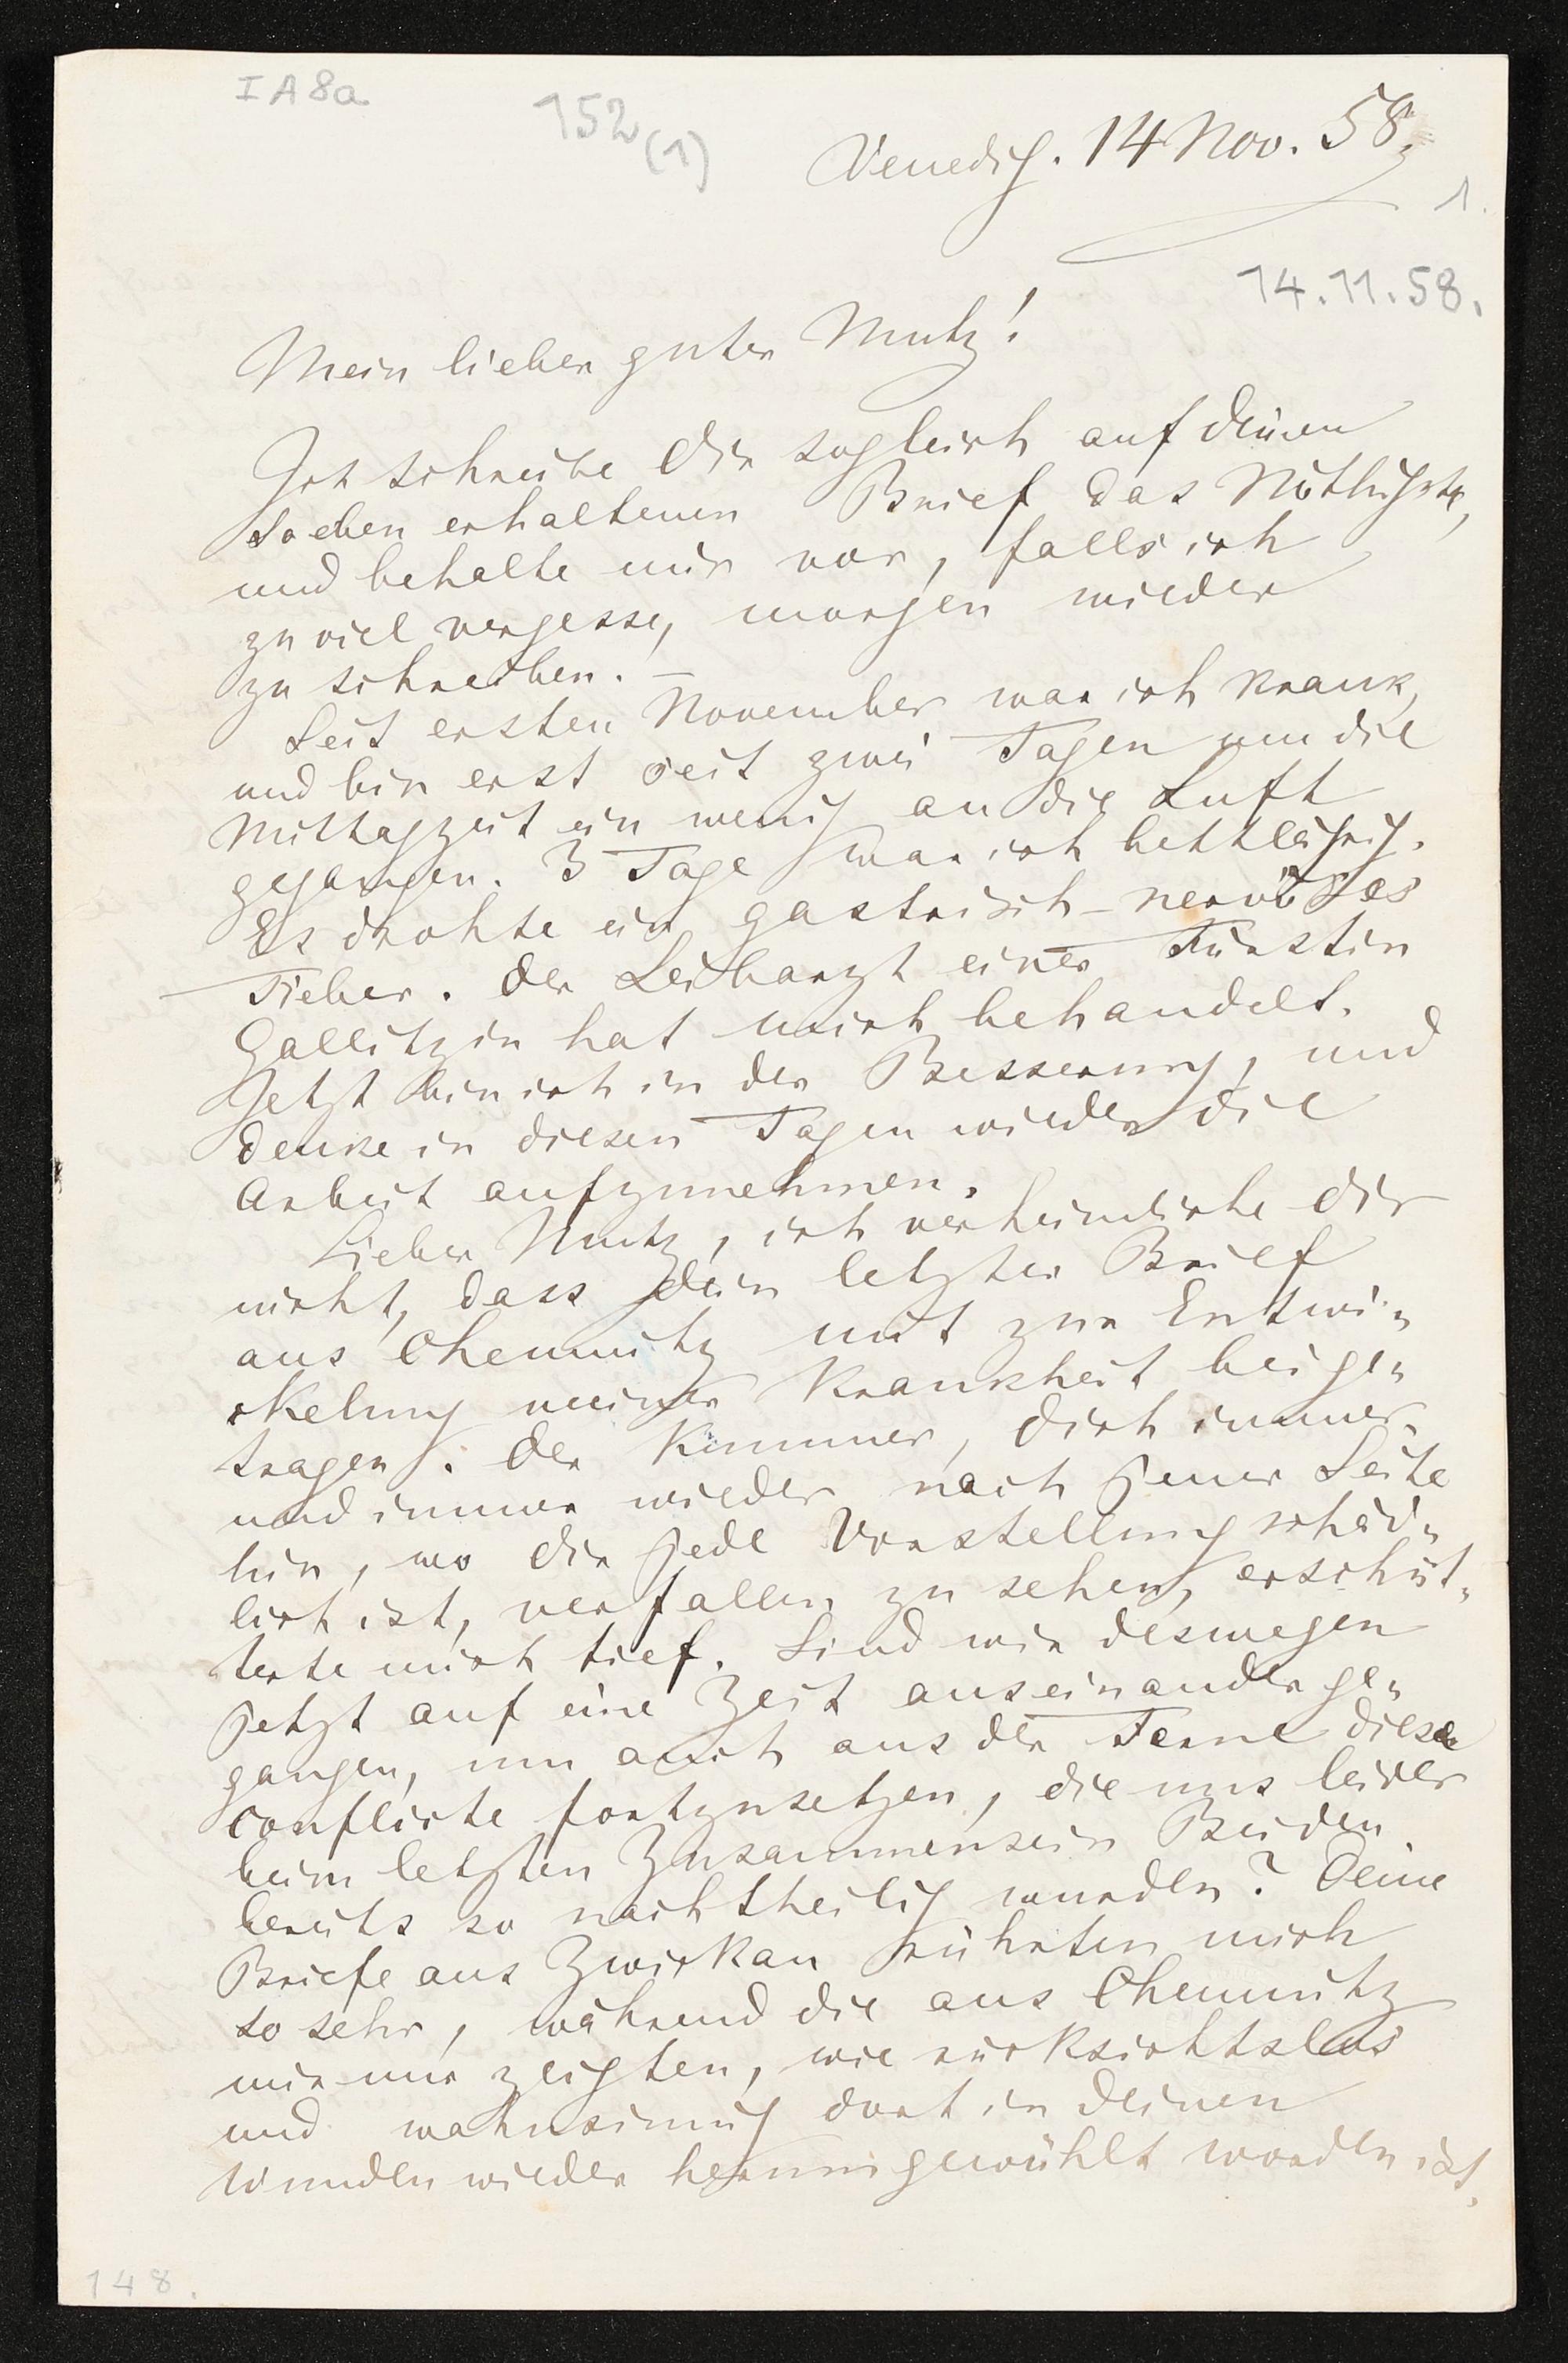 IA8a
152
(1)
Venedig. 14 Nov. 58.
1.
14.11.58.
Mein lieber guter Mutz!
Ich schreibe Dir sogleich auf deinen
so eben erhaltenen Brief das Nöthigste,
und behalte mir vor, falls ich
zu viel vergesse, morgen wieder
zu schreiben. —
Seit ersten November war ich krank,
und bin erst seit zwei Tagen um die
Mittagzeit ein wenig an die Luft
gegangen. 3 Tage war ich bettlägrig.
Es drohte ein gastrisch-nervöses
Fieber. Der Leibarzt einer Fürstin
Gallitzin hat mich behandelt.
Jetzt bin ich in der Besserung, und
denke in diesen Tagen wieder die
Arbeit aufzunehmen.
Lieber Mutz, ich verheimliche dir
nicht, dass dein letzter Brief
aus Chemnitz mit zur Entwi-
ckelung meiner Krankheit beige-
tragen. Der Kummer, dich immer
und immer wieder nach jener Seite
hin, wo dir jede Vorstellung schäd-
lich ist, verfallen zu sehen, erschüt-
terte mich tief. Sind wir deswegen
jetzt auf eine Zeit auseinanderge-
gangen, um auch aus der Ferne diese
Conflicte fortzusetzen, die uns leider
beim letzten Zusammensein Beiden
bereits so nachtheilig wurden? Deine
Briefe aus Zwickau rührten mich
so sehr, während die aus Chemnitz
mir nur zeigten, wie rücksichtslos
und wahnsinnig dort in deinen
Wunden wieder herumgewühlt worden ist.
148.